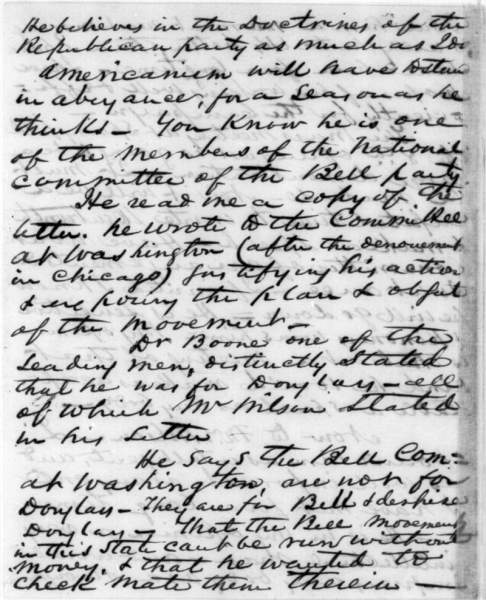 He believes in the Doctrines of the
Republican party as much as I do
Americanism will have to stand
in abeyance, for a Season as he
thinks - You Know he is one
of the members of the National
committee of the Bell party
He read me a copy of the
letter. he wrote to the Committee
at Washington (after the denouement
in Chicago) Justifying his action
& exposing the plan & object
of the movement. -
Dr Boone one of the
leading men, distinctly Stated
that he was for Douglass - all
of which Mr Wilson Stated
in his Letter
He Says the Bell Com:
at Washington, are not for
Douglass - They are for Bell & despise
Douglass - That the Bell movement
in this State cant be run without
money, & that he wanted to
check mate them therein -